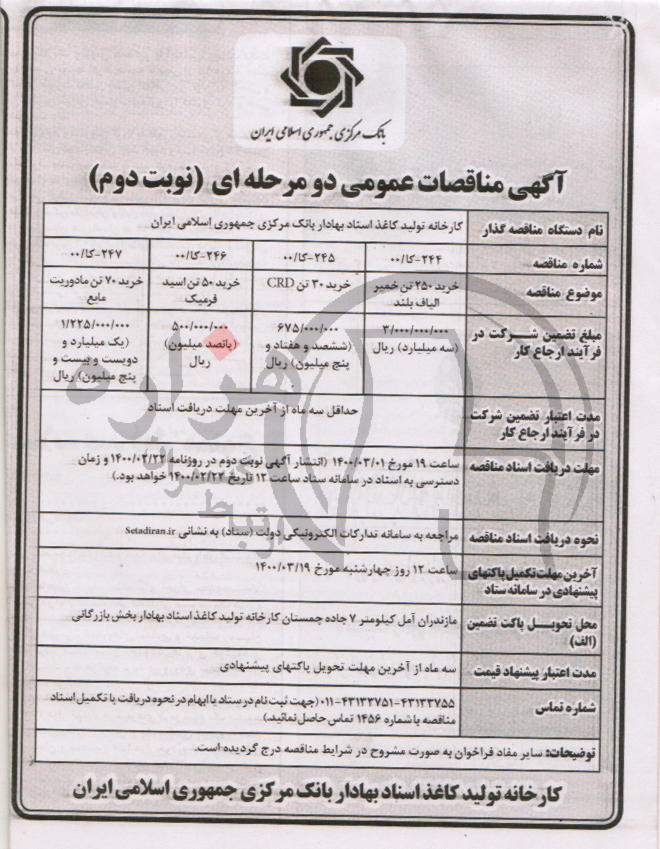 بانک مرکزی جمهوری اسلامی ایران
آگهی مناقصات عمومی دو مرحله ای (نوبت دوم)
نام دستگاه مناقصه گذار
کارخانه تولید کاغذ اسناد بهادار بانک مرکزی جمهوری اسلامی ایران
شماره مناقصه
۲۴۴-کا/۰۰
۲۴۵-کا/۰۰
۲۴۶-کا/۰۰
۲۴۷-کا/۰۰
موضوع مناقصه
خرید ۲۵۰ تن خمیر
الیاف بلند
خرید ۳۰ تن CRD
خرید ۵۰ تن اسید
فرمیک
خرید ۷۰ تن مادوریت
مایع
مبلغ تضمین شرکت در
فرآیند ارجاع کار
۳/۰۰۰/۰۰۰/۰۰۰
(سه میلیارد) ریال
۶۷۵/۰۰۰/۰۰۰
(ششصد و هفتاد و
پنج میلیون) ریال
۵۰۰/۰۰۰/۰۰۰
(پانصد میلیون)
ریال
۱/۲۲۵/۰۰۰/۰۰۰
(یک میلیارد و
دویست و بیست و
پنج میلیون) ریال
مدت اعتبار تضمین شرکت
در فرآیند ارجاع کار
حداقل سه ماه از آخرین مهلت دریافت اسناد
مهلت دریافت اسناد مناقصه
ساعت ۱۹ مورخ ۱۴۰۰/۰۳/۰۱ (انتشار آگهی نوبت دوم در روزنامه ۱۴۰۰/۰۲/۲۲ و زمان
دسترسی به اسناد در سامانه ستاد ساعت ۱۲ تاریخ ۱۴۰۰/۰۲/۲۲ خواهد بود.)
نحوه دریافت اسناد مناقصه
مراجعه به سامانه تدارکات الکترونیکی دولت (ستاد) به نشانی Setadiran.ir
آخرین مهلت تکمیل پاکتهای
پیشنهادی در سامانه ستاد
ساعت ۱۲ روز چهارشنبه مورخ ۱۴۰۰/۰۳/۱۹
محل تحویل پاکت تضمین
(الف)
مازندران آمل کیلومتر ۷ جاده چمستان کارخانه تولید کاغذ اسناد بهادار بخش بازرگانی
مدت اعتبار پیشنهاد قیمت
سه ماه از آخرین مهلت تحویل پاکتهای پیشنهادی
شماره تماس
۴۳۱۳۳۷۵۵-۴۳۱۳۳۷۵۱-۰۱۱ (جهت ثبت نام در ستاد یا ابهام در نحوه دریافت یا تکمیل اسناد
مناقصه با شماره ۱۴۵۶ تماس حاصل نمائید.)
توضیحات: سایر مفاد فراخوان به صورت مشروح در شرایط مناقصه درج گردیده است.
کارخانه تولید کاغذ اسناد بهادار بانک مرکزی جمهوری اسلامی ایران